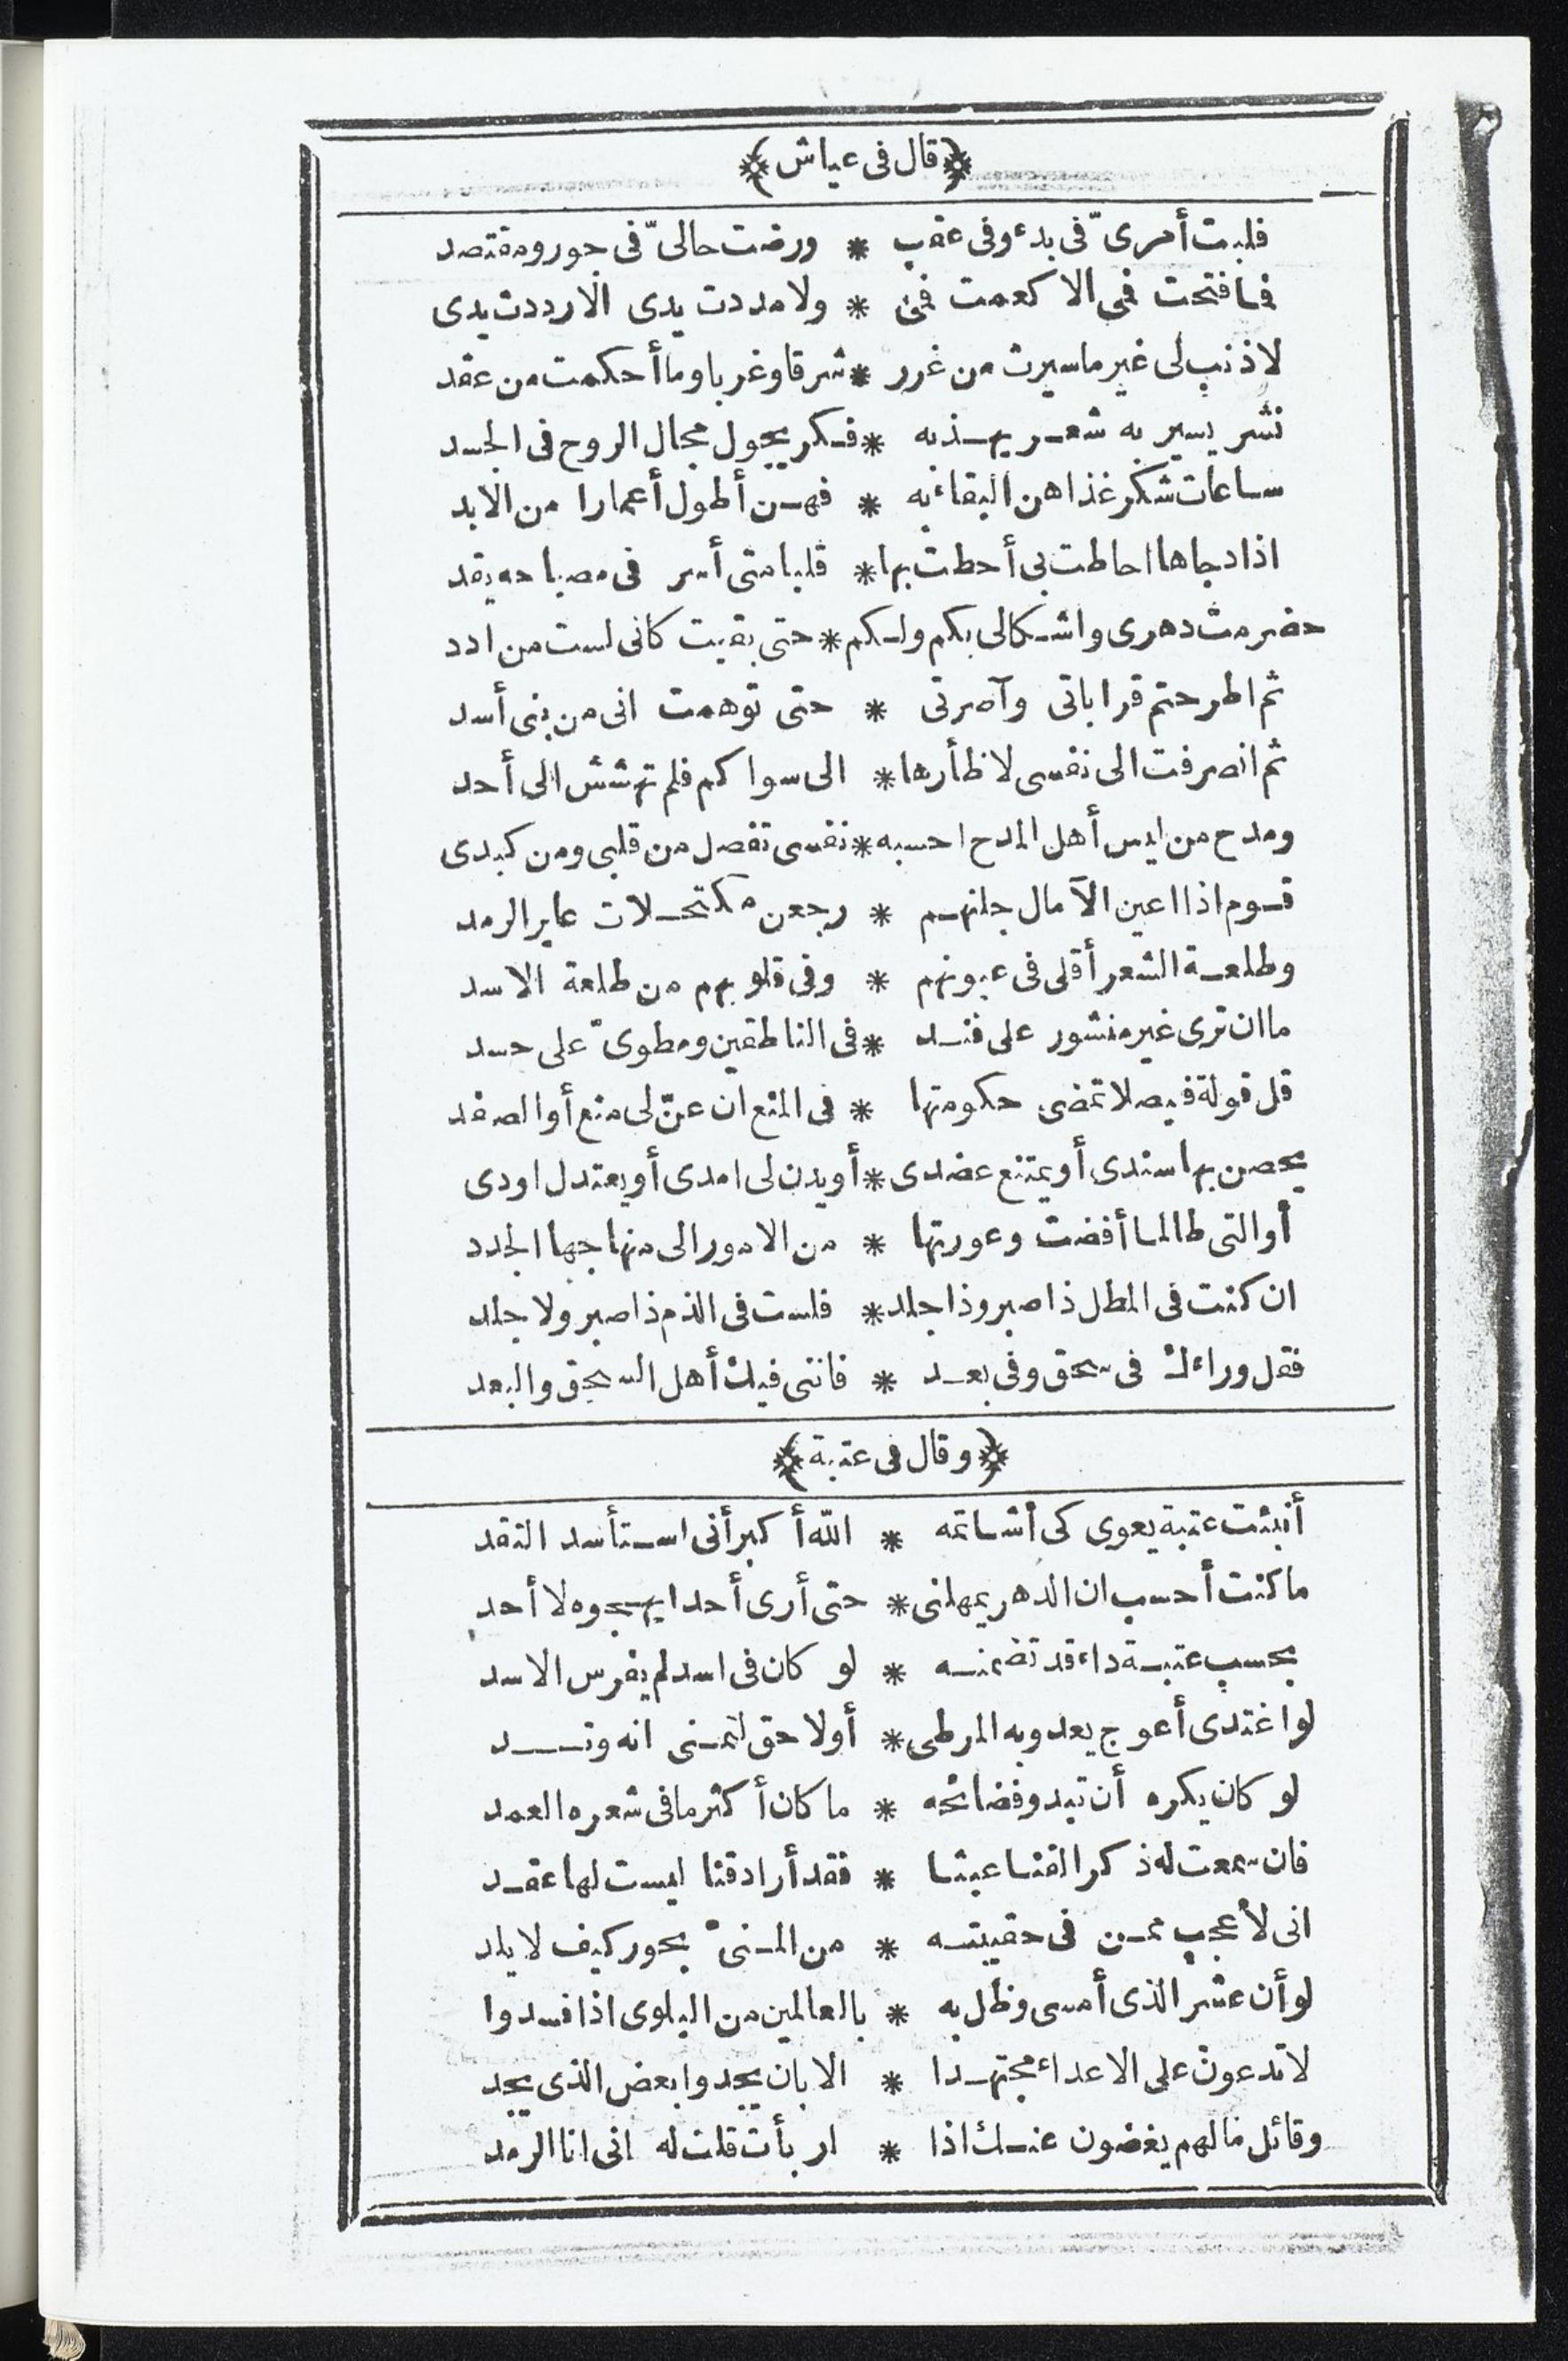 ﴿قال فى عياش﴾
قلبت أمرىّ فى بدء وفى عقب * ورضت حالىّ فى جور ومقتصد
فما فتحت فمى الا كعمت فمى * ولا مددت يدى الا رددت يدى
لا ذنب لى غير ما سيرت من غرر * شرقا وغربا وما أحكمت من عقد
نشر يسير به شعر يهذبه * فكر يجول مجال الروح فى الجسد
ساعات شكر غذاهن البقاء به * فهن أطول أعمارا من الابد
اذا دجاها احاطت بى أحطت بها * قلبا متى أسر فى مصباحه يقد
حضرمت دهرى واشكالى بكم ولكم * حتى بقيت كانى لست من ادد
ثم اطرحتم قراباتى وآصرتى * حتى توهمت انى من بنى أسد
ثم انصرفت الى نفسى لاظأرها * الى سواكم فلم تهشش الى أحد
ومدح من ليس أهل المدح احسبه * نفسى تفصل من قلبى ومن كبدى
قوم اذا اعين الآمال جلنهم * رجعن مكتحلات عاير الرمد
وطلعة الشعر أقلى فى عيونهم * وفى قلوبهم من طلعة الاسد
ما ان ترى غير منشور على فند * فى الناطقين ومطوىّ على حسد
قل قولة فيصلا تمضى حكومتها * فى المنع ان عنّ لى منع أو الصفد
يحصن بها سندى أو يمتنع عضدى * أو يدن لى امدى أو يعتدل اودى
أو التى طالما أفضت وعورتها * من الامور الى منهاجها الجدد
ان كنت فى المطل ذا صبر وذا جلد * فلست فى الذم ذا صبر ولا جلد
فقل وراءك فى سحق وفى بعد * فاننى فيك أهل السحق والبعد
﴿وقال فى عتبة﴾
أنبئت عتبة يعوى كى أشاتمه * الله أكبر أنى استأسد النقد
ما كنت أحسب ان الدهر يمهلنى * حتى أرى أحدا يهجوه لا أحد
بحسب عتبة داء قد تضمنه * لو كان فى اسد لم يفرس الاسد
لو اغتدى أعوج يعدو به المرطى * أو لاحق لتمنى انه وتد
لو كان يكره أن تبدو فضائحه * ما كان أكثر ما فى شعره العمد
فان سمعت له ذكر القنا عبثا * فقد أراد قنا ليست لها عقد
انى لأعجب ممن فى حقيبته * من المنىّ بحور كيف لا يلد
لو أن عشر الذى أمسى وظل به * بالعالمين من البلوى اذا فسدوا
لا تدعون على الاعداء مجتهدا * الا بان يجدوا بعض الذى يجد
وقائل ما لهم يغضون عنك اذا * اربأت قلت له انى انا الرمد